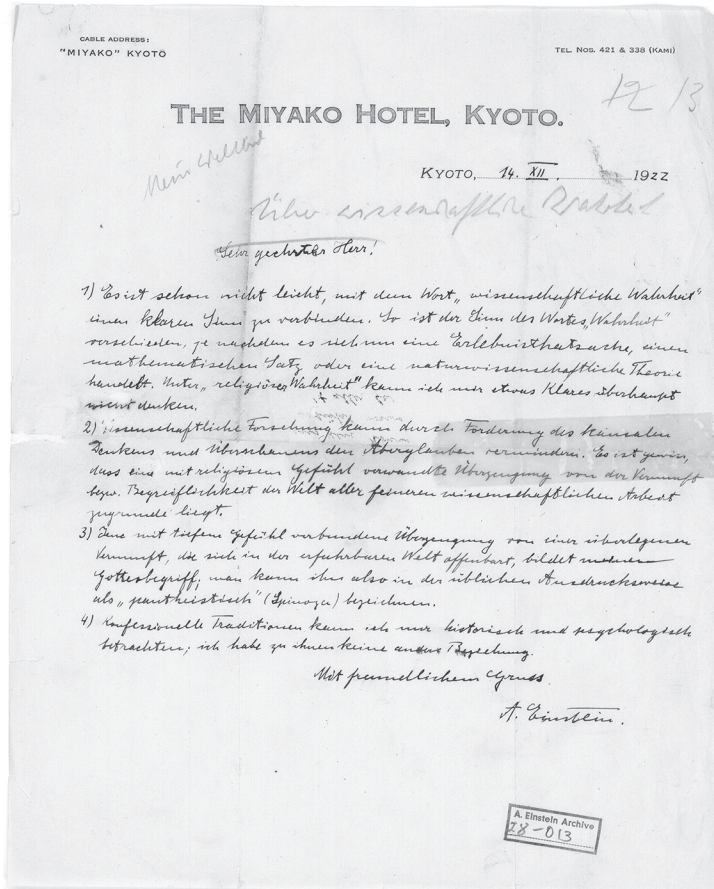 CABLE ADDRESS:
"MIYAKO" KYOTO
TEL. NOS. 421 & 338 (KAMI)
12 13
THE MIYAKO HOTEL, KYOTO.
Mein Weltbild
KYOTO, 14. XII. 1922
Über wissenschaftliche Wahrheit
Sehr geehrter Herr!
1) Es ist schon nicht leicht, mit dem Wort „wissenschaftliche Wahrheit"
einen klaren Sinn zu verbinden. So ist der Sinn des Wortes „Wahrheit"
verschieden, je nachdem es sich um eine Erlebnisthatsache, einen
mathematischen Satz oder eine naturwissenschaftliche Theorie
handelt. Unter „religiöser Wahrheit" kann ich mir etwas Klares überhaupt
nicht denken.
2) Wissenschaftliche Forschung kann durch Förderung des kausalen
Denkens und Überschauens den Aberglauben vermindern. Es ist gewiss,
dass eine mit religiösem Gefühl verwandte Überzeugung von der Vernunft
bezw. Begreiflichkeit der Welt aller feineren wissenschaftlichen Arbeit
zugrunde liegt.
3) Jene mit tiefem Gefühl verbundene Überzeugung von einer überlegenen
Vernunft, die sich in der erfahrbaren Welt offenbart, bildet meinen
Gottesbegriff; man kann ihn also in der üblichen Ausdrucksweise
als „pantheistisch" (Spinoza) bezeichnen.
4) Konfessionelle Traditionen kann ich nur historisch und psychologisch
betrachten; ich habe zu ihnen keine andere Beziehung.
Mit freundlichem Gruss
A. Einstein.
A. Einstein Archive
28-013